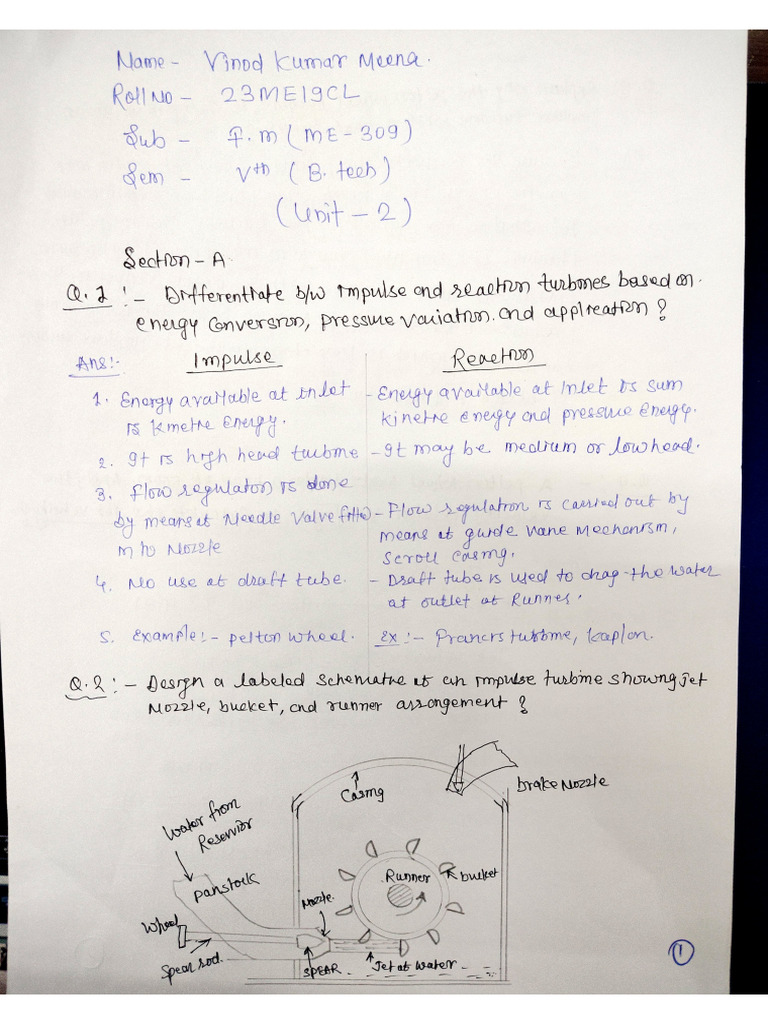 Name - Vinod Kumar Meena.
Roll No - 23ME19CL
Sub - F.M (ME-309)
Sem - Vth (B. tech)
(Unit - 2)
Section - A
Q.1 :- Differentiate b/w impulse and reaction turbines based on
energy conversion, pressure variation and application ?
Ans:- Impulse
1. Energy available at inlet
is kinetic Energy.
2. It is high head turbine
3. Flow regulation is done
by means of Needle Valve fitted
in to Nozzle
4. No use of draft tube.
5. Example:- pelton wheel.
Reaction
- Energy available at Inlet is sum
kinetic energy and pressure Energy.
- It may be medium or low head.
- Flow regulation is carried out by
means of guide vane mechanism,
scroll casing.
- Draft tube is used to drag the water
at outlet of Runner.
Ex:- Francis turbine, Kaplan.
Q.2 :- Design a labeled schematic of an impulse turbine showing jet
Nozzle, bucket, and runner arrangement ?
Casing
brake Nozzle
Water from
Reservior
panstock
Runner
bucket
Nozzle.
Wheel
Spear rod.
SPEAR
Jet of water
1